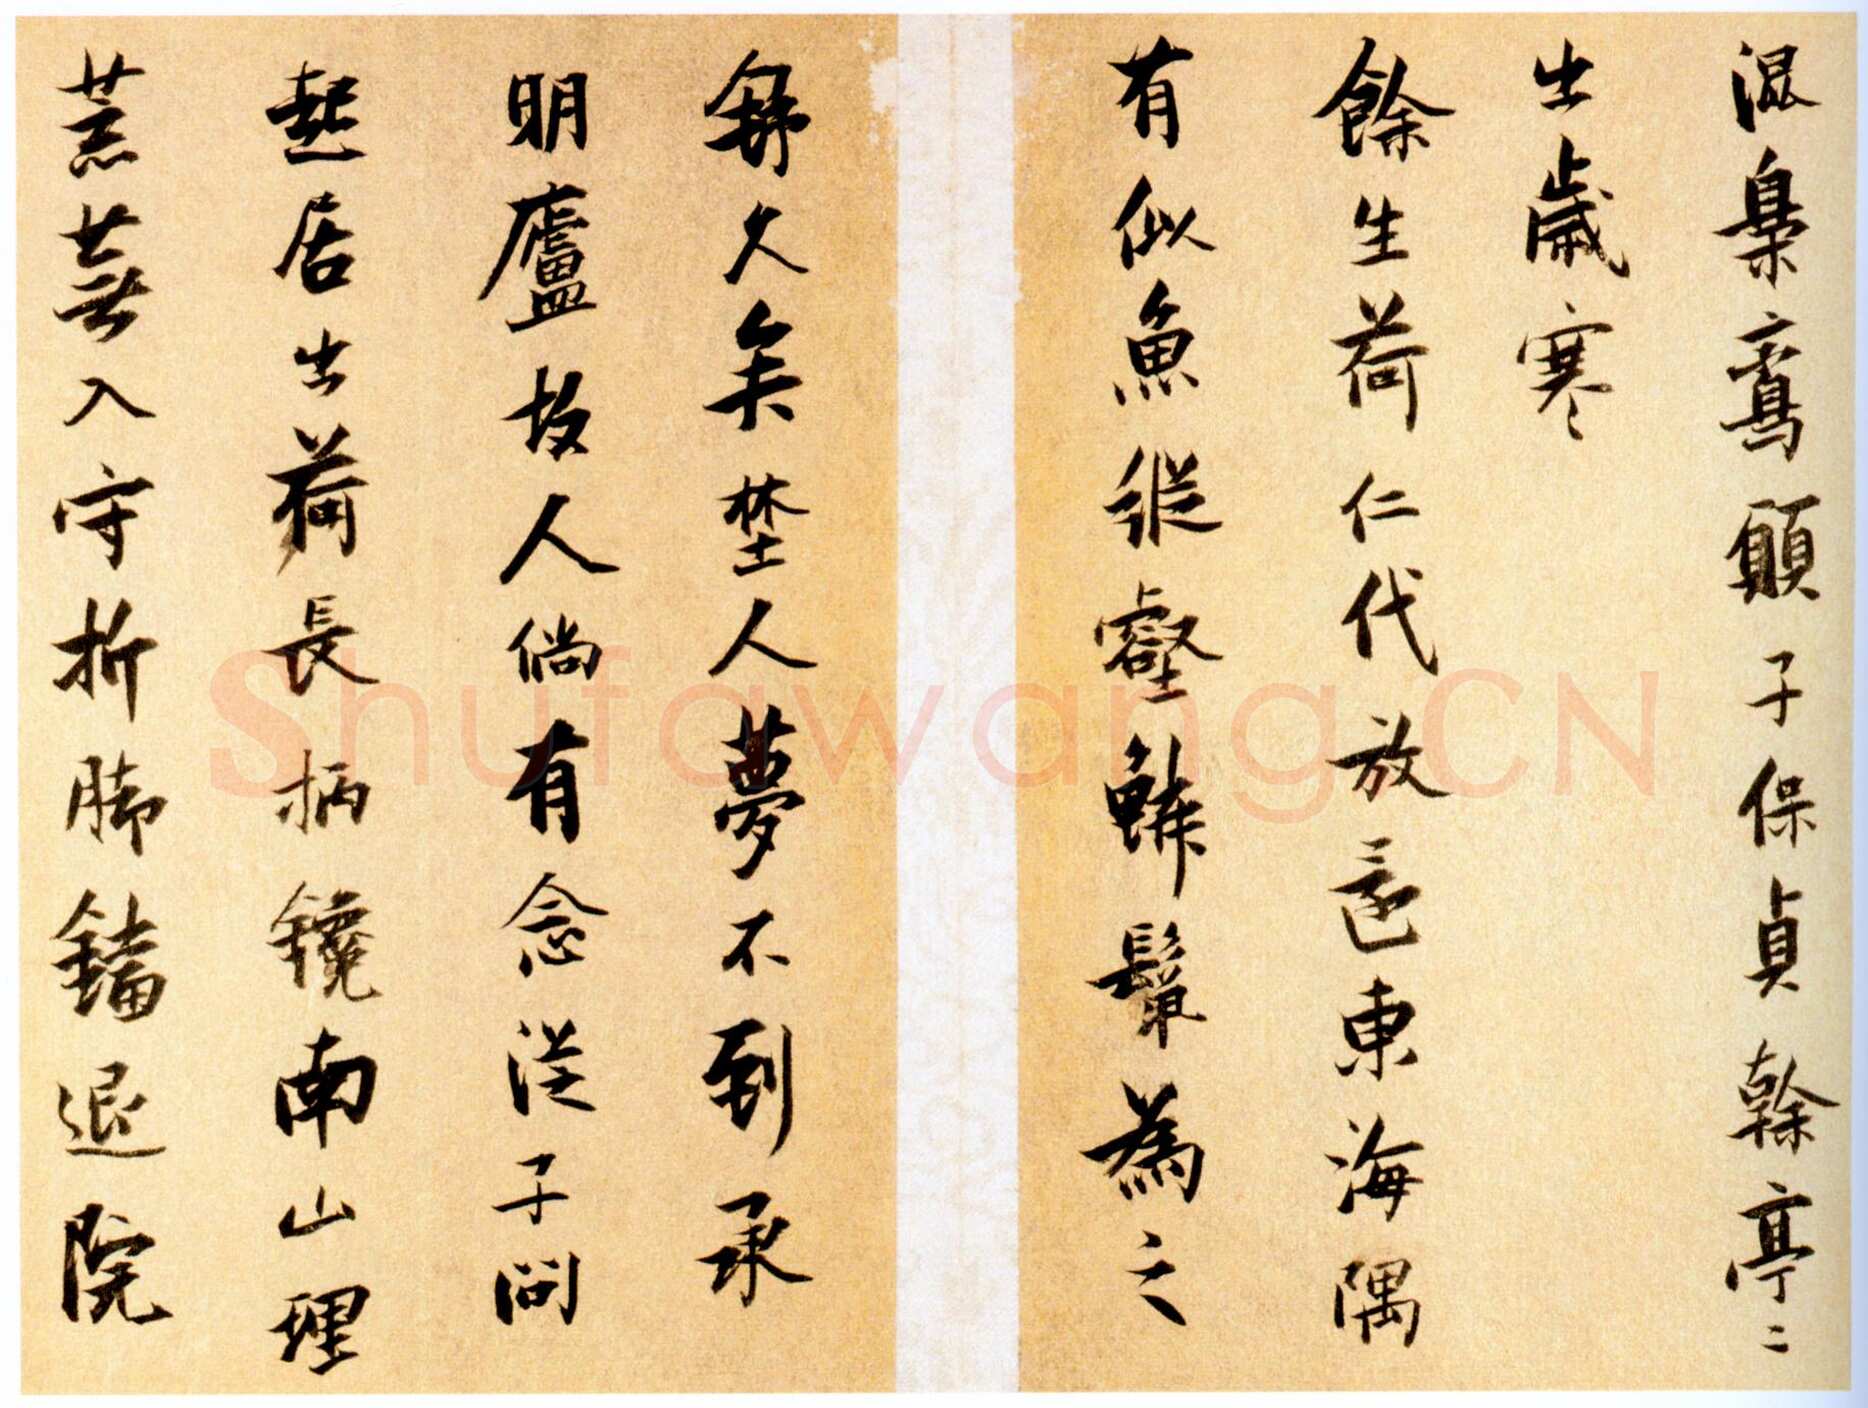 混梟鸞願子保貞幹亭〻
出歲寒
餘生荷仁代放逐東海隅
有似魚縱壑鱗鬐為之
舒久矣埜人夢不到承
明廬故人倘有念從子問
起居出荷長柄鑱南山理
荒蕪入守折脚鐺退院
Shufawang.CN